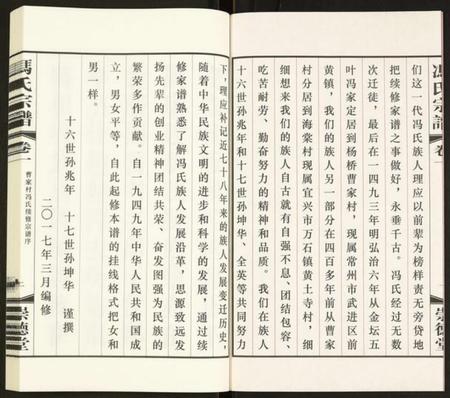 馮氏宗譜
卷一
崇德堂
们这一代冯氏族人理应以前辈为榜样责无旁贷地
把续修家谱之事做好，永垂千古。冯氏经过无数
次迁徙，最后在一四九三年明弘治六年从金坛五
叶冯家定居到杨桥曹家村，现属常州市武进区前
黄镇，我们的族人另一部分在四百多年前从曹家
村分居到海棠村现属宜兴市万石镇黄土寺村，细
细想来我们的族人自古就有自强不息、团结包容、
吃苦耐劳、勤奋努力的精神和品质。我们在族人
十六世孙兆年和十七世孙坤华、全英等共同努力
下，理应补记近七十八年来的族人发展变迁历史，
随着中华民族文明的进步和科学的发展，通过续
修家谱熟悉了解冯氏族人发展沿革，思源致远发
扬先辈的创业精神团结共荣、奋发图强为民族的
繁荣多作贡献。自一九四九年中华人民共和国成
立，男女平等，自此起修本谱的挂线格式把女和
男一样。
十六世孙兆年　十七世孙坤华　谨撰
二〇一七年三月编修
馮氏宗譜
卷一
曹家村冯氏续修宗谱序
崇德堂